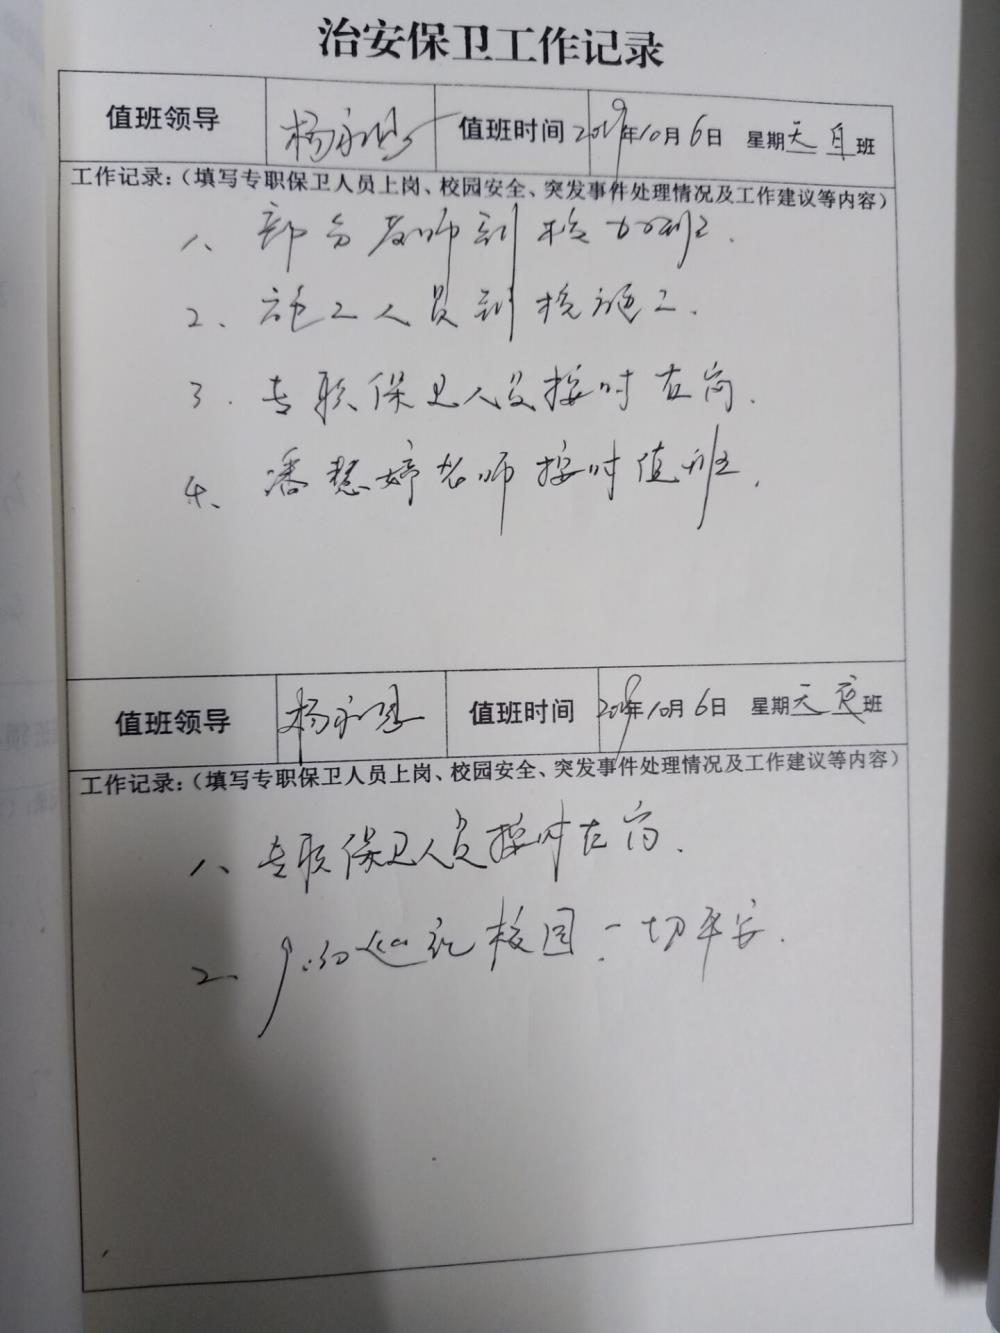 治安保卫工作记录
值班领导 杨永 值班时间 2019年10月6日 星期天 白班
工作记录：（填写专职保卫人员上岗、校园安全、突发事件处理情况及工作建议等内容）
1、部分教师到校加班.
2、施工人员到校施工.
3.专职保卫人员按时在岗.
4、潘慧婷老师按时值班.
值班领导 杨永 值班时间 2019年10月6日 星期天 夜班
工作记录：（填写专职保卫人员上岗、校园安全、突发事件处理情况及工作建议等内容）
1、专职保卫人员按时在岗.
2、9:30巡视校园.一切平安.